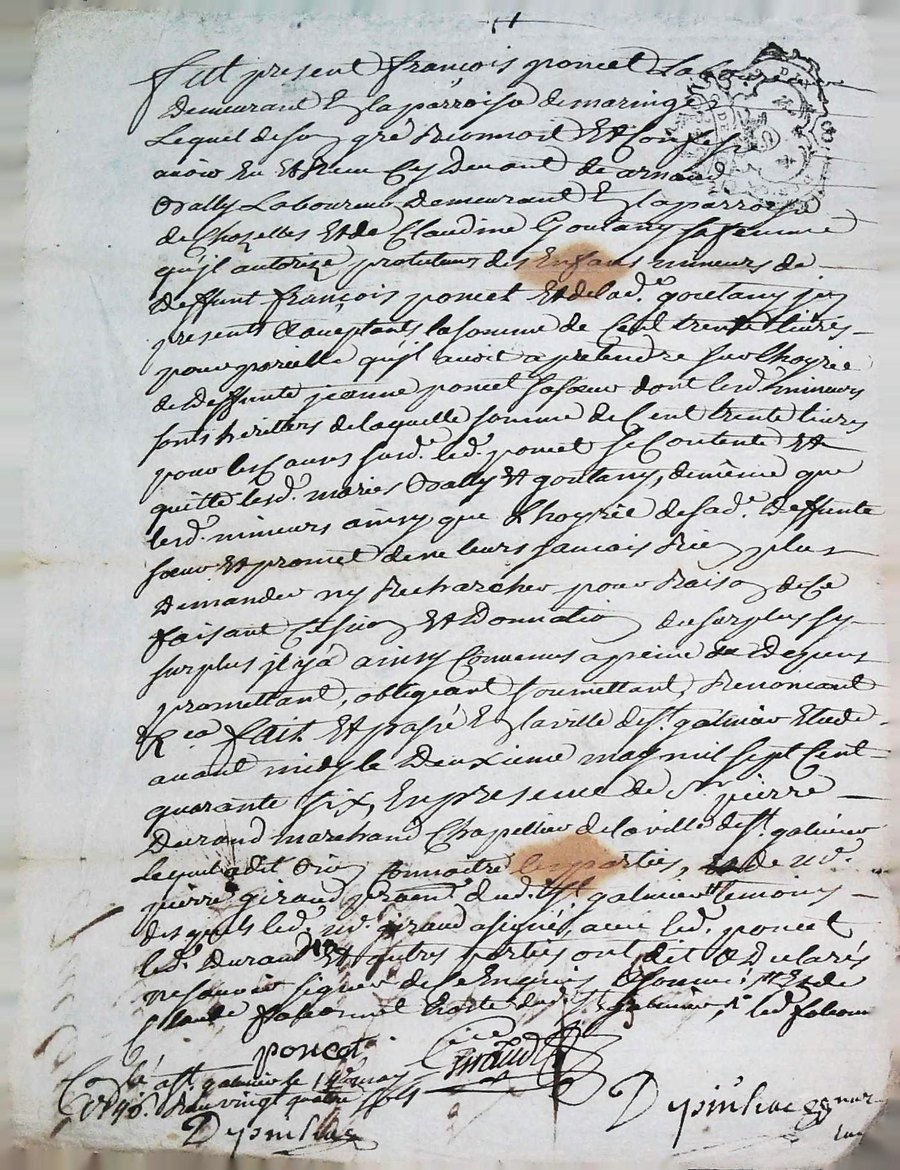 fut present françois poncet Labou
Demeurant En la parroisse de maringe
Lequel de son gré Reconnoit Et Confesse
avoir Eu Et Receu Cy Devant de arnaud
Vally Laboureur Demeurant En la parroisse
de Chazelles Et de Claudine Goutany sa femme
qu'jl autorize, protuteurs des Enfans mineurs de
deffunt françois poncet Et de lad.e goutany jcy
presents & acceptants la somme de Cent trente livres
pour parcelle qu'jl avoit a pretendre sur lhoyrie
de Deffunte jeanne poncet sa sœur dont lesd. mineurs
sont heritiers de laquelle somme de Cent trente livres
pour les Causes susd. led. poncet se Contente Et
quitte lesd. mariés Vally Et goutany, de même que
lesd. mineurs ainsy que Lhoyrie de sad.e Deffunte
sœur Et promet de ne leurs jamais Rien plus
Demander ny Rechercher pour Raison de Ce
faisant Cession Et Donnation du surplus sy
surplus jl y a ainsy Convenus a peine de Depens
promettant, obligeant soumettant, Renoncant
&ca fait Et passé En la ville de st. galmier Etude
avant midy le Deuxieme may mil sept Cent
quarante six, En presence de Sr. pierre
Durand marchand Chapellier de la ville de st. galmier
Lequel a dit bien connoitre les parties, Et de
pierre giraud dud. st. galmier temoins
desquels led. giraud a signé, avec led. poncet
led. Durand Et autres parties ont dit & Declarés
ne savoir signer de Ce Enquis & sommé, Et de
Claude dud. st. galmier, led.
poncet
Giraud
Con.lé a st. galmier le 14e may
1746. Reçu vingt quatre sols